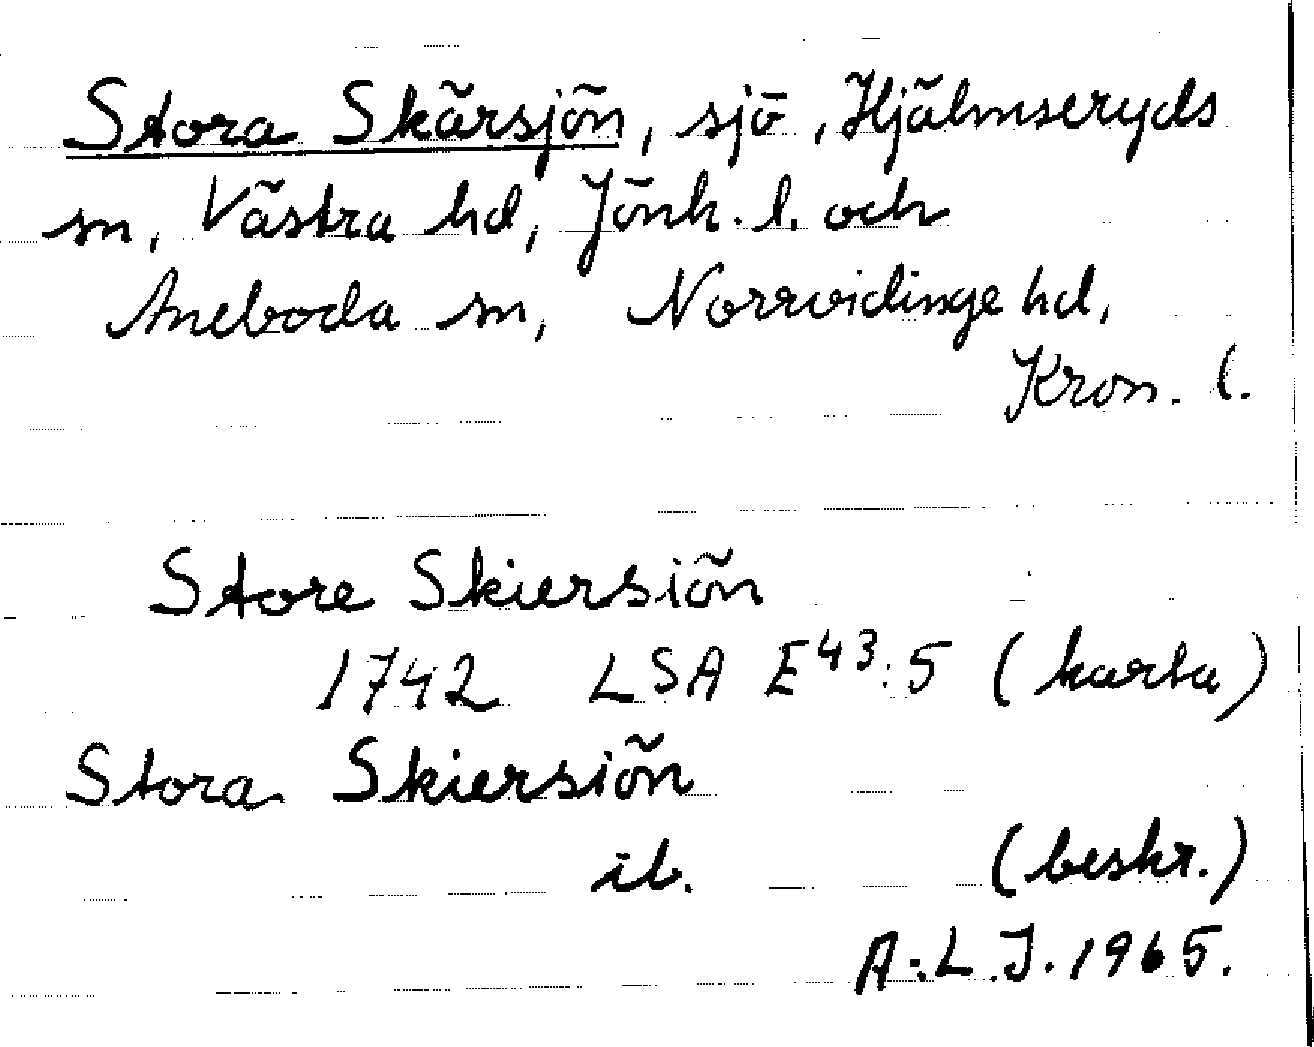 Stora Skärsjön, sjö, Hjälmseryds
sn, Västra hd, Jönk. l. och
Aneboda sn, Norrvidinge hd,
Kron. l.
Store Skiersiön
1742 LSA E43:5 (karta)
Stora Skiersiön
ib. (beskr.)
A.L.J. 1965.